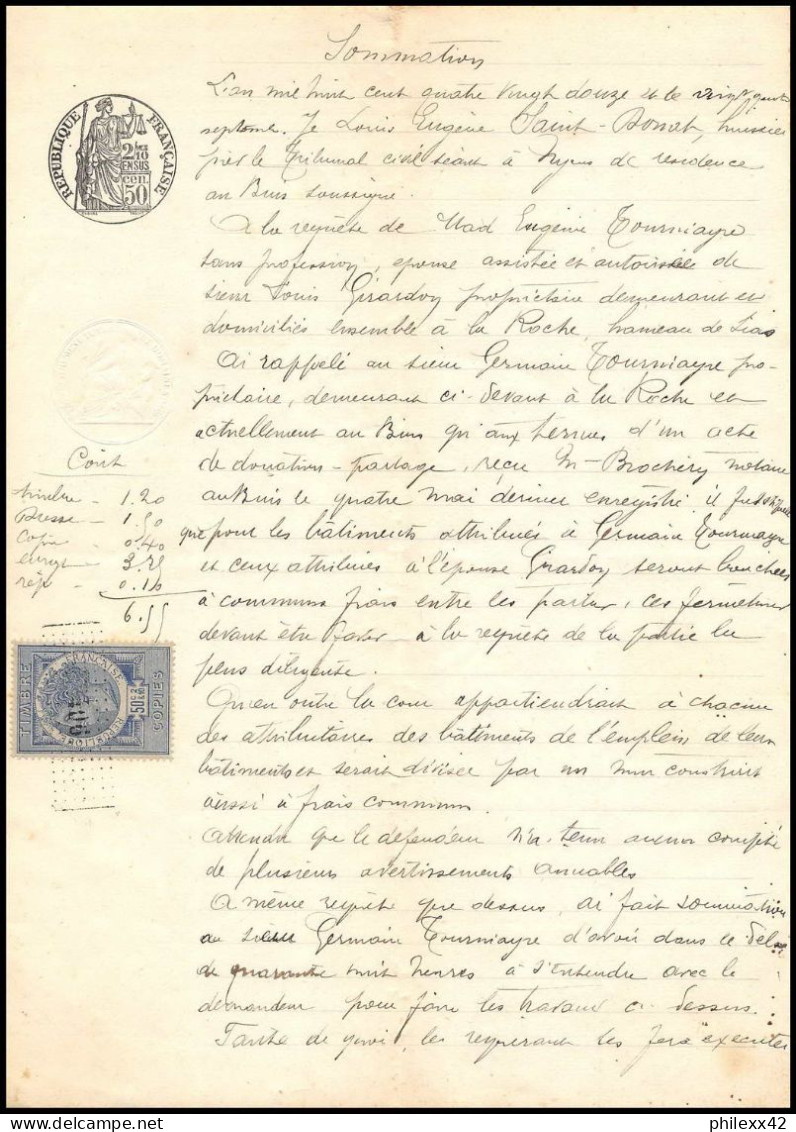 Sommation
L'an mil huit cent quatre vingt douze et le vingt
septembre. Je Louis Eugène Saint-Bonnet, huissier
près le Tribunal civil séant à Nyons de residence
au Buis soussigné.
A la requête de Mad Eugénie Tourniayre
sans profession, epouse assistée et autorisée de
sieur Louis Girardon propriétaire demeurant et
domiciliés ensemble à la Roche, hameau de
Ai rappelé au sieur Germain Tourniayre pro-
priétaire, demeurant ci-devant à la Roche et
actuellement au Buis qu'aux termes d'un acte
de donation-partage, reçu Me Brochery notaire
au Buis le quatre mai dernier enregistré, il fut stipulé
que pour les bâtiments attribués à Germain Tourniayre
et ceux attribués à l'épouse Girardon seront bouchées
à communs frais entre les parties, ces fermetures
devant être faites à la requête de la partie la
plus diligente.
Qu'en outre la cour appartiendrait à chacun
des attributaires des bâtiments de l'emplein de leurs
bâtiments et serait divisée par un mur construit
aussi à frais communs.
Attendu que le défendeur n'a tenu aucun compte
de plusieurs avertissements amiables
A même requête que dessus, ai fait sommation
au sieur Germain Tourniayre d'avoir dans le délai
de quarante huit heures à s'entendre avec le
demandeur pour faire les travaux ci-dessus.
Faute de quoi, les requérant les fera exécuter
RÉPUBLIQUE FRANÇAISE
2/10
EN SUS
50 cen
Coût
timbre - 1.20
1.50
copie 0.40
enregt 3.35
rép 0.10
6.55
TIMBRE COPIES
FRANÇAISE
50c 2/10 EN SUS
philexx42